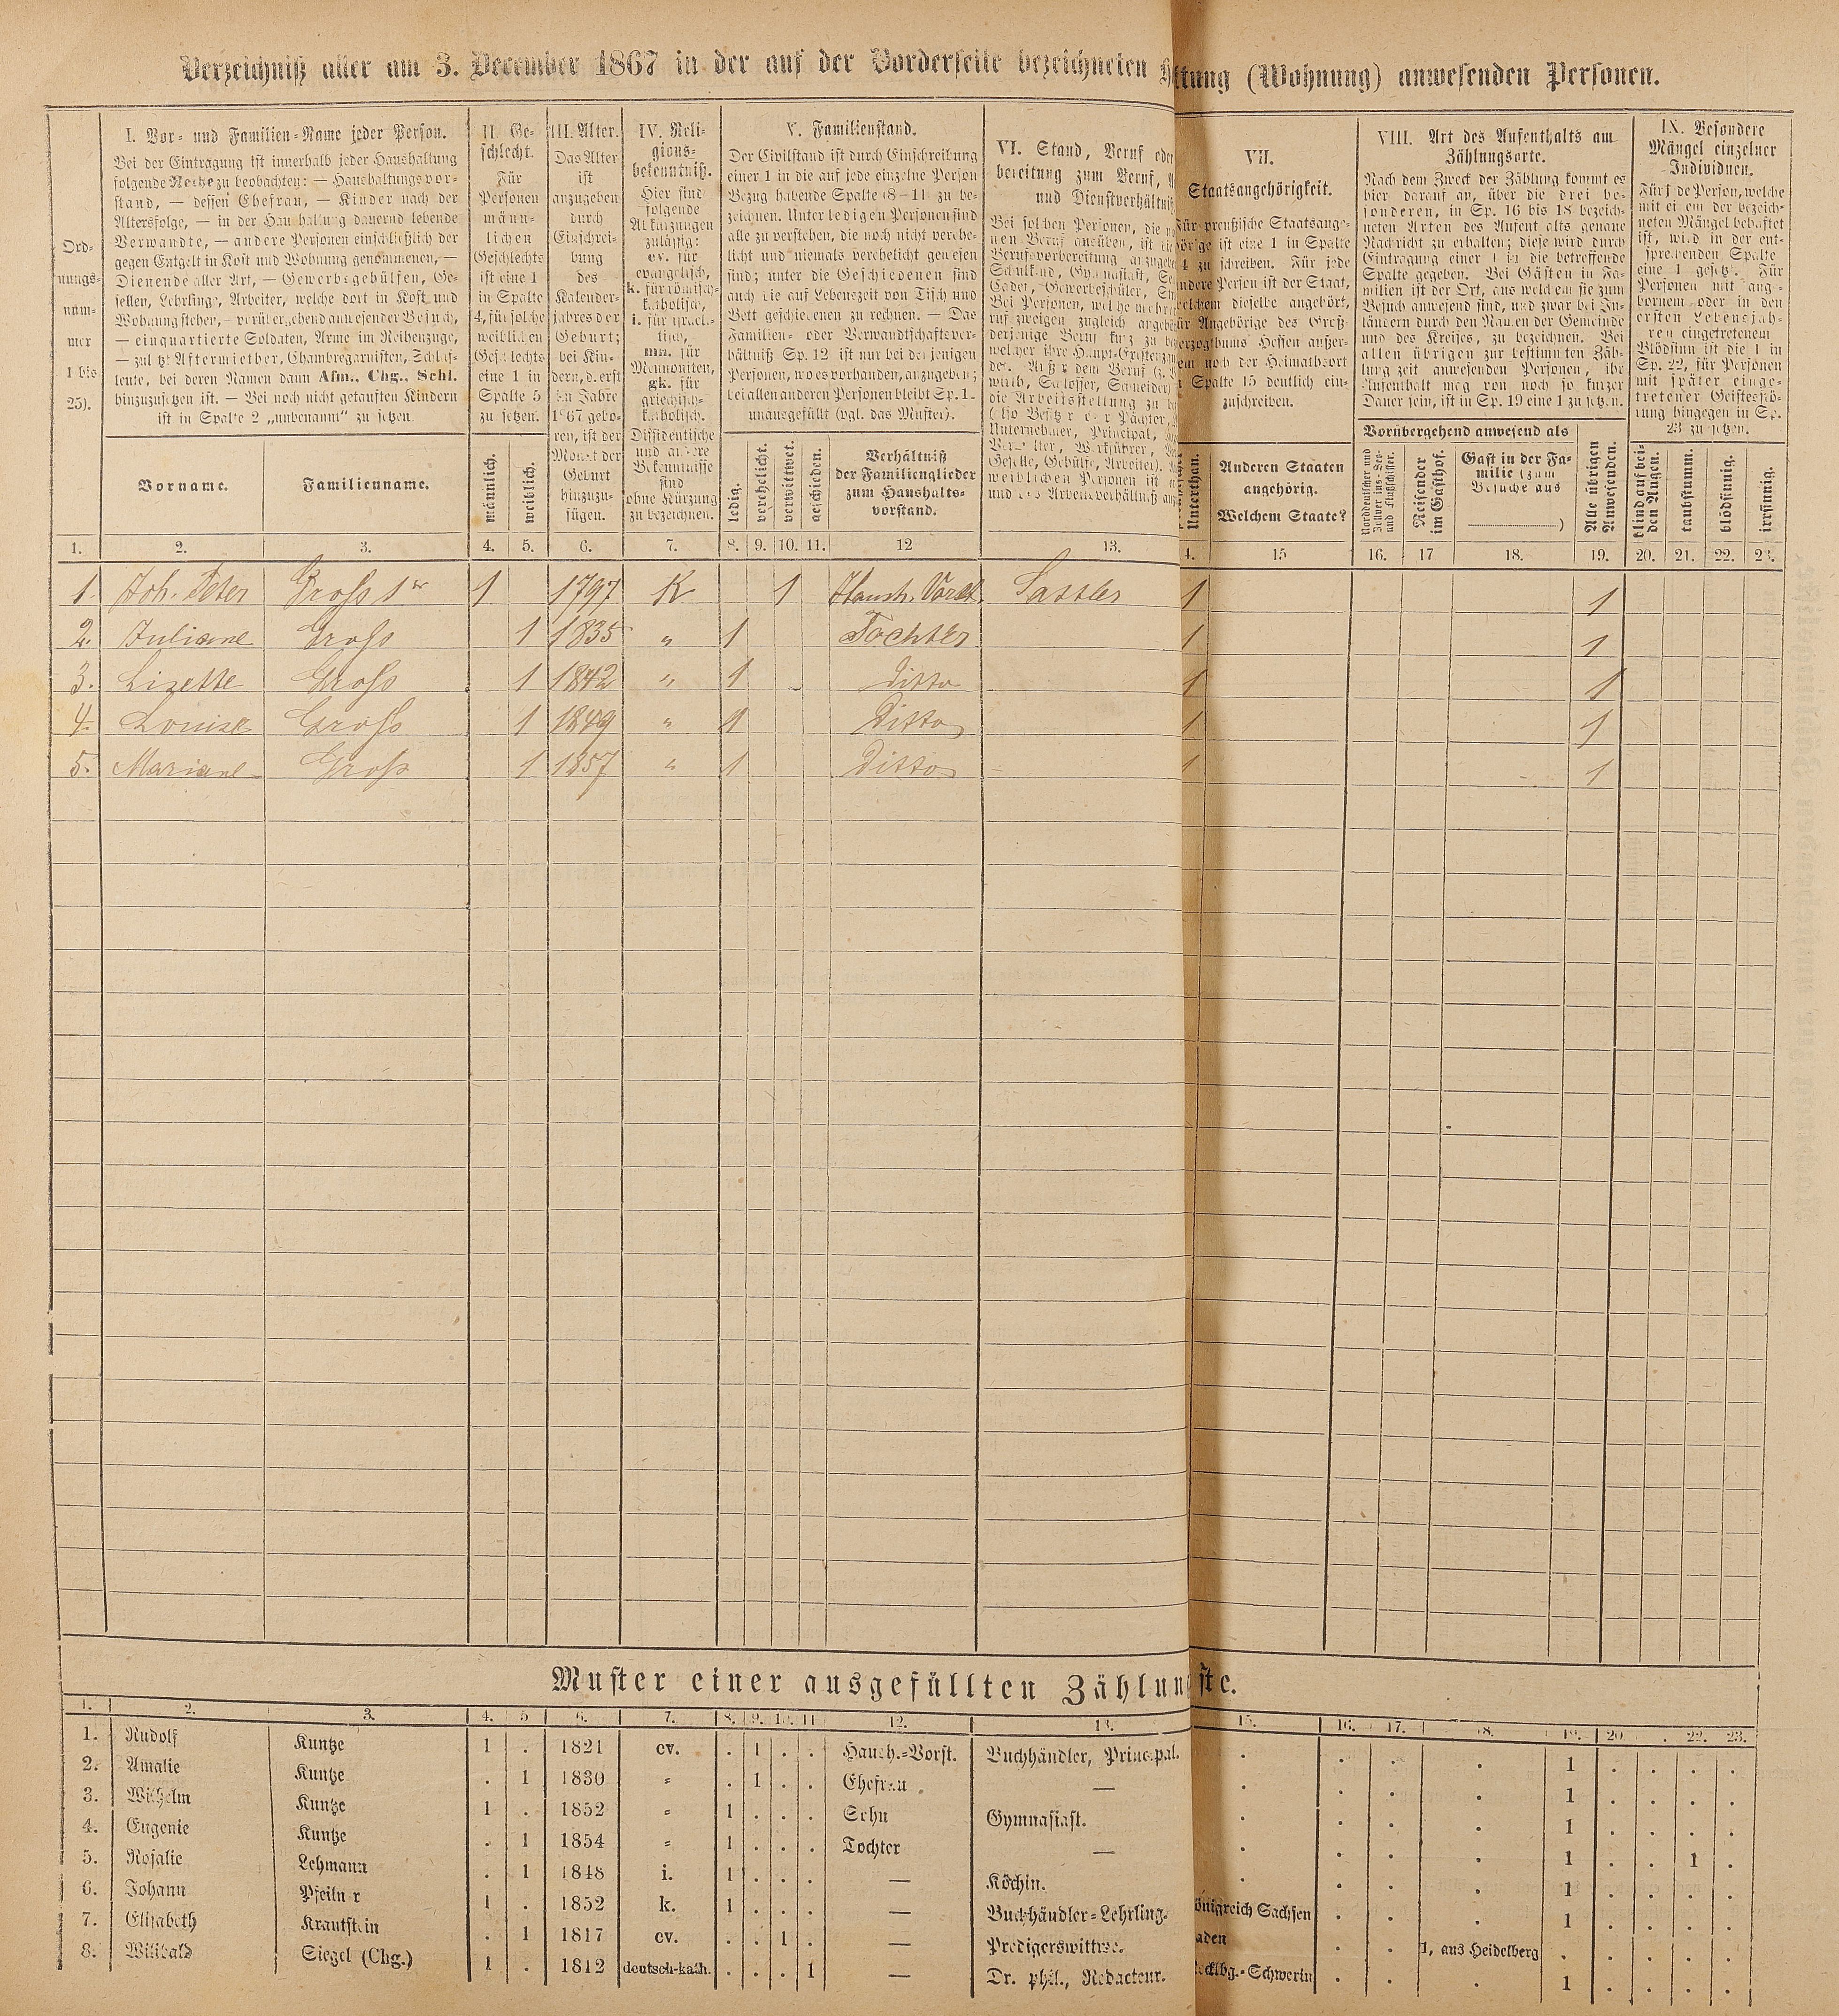 Verzeichniß aller am 3. December 1867 in der auf der Vorderseite bezeichneten
ltung (Wohnung) anwesenden Personen.
Ord-
nungs-
num-
mer
1 bis
25).
I. Vor- und Familien-Name jeder Person.
Bei der Eintragung ist innerhalb jeder Haushaltung
folgende Reihe zu beobachten: — Haushaltungsvor-
stand, — dessen Ehefrau, — Kinder nach der
Altersfolge, — in der Haushaltung dauernd lebende
Verwandte, — andere Personen einschließlich der
gegen Entgelt in Kost und Wohnung genommenen, —
Dienende aller Art, — Gewerbsgehülfen, Ge-
sellen, Lehrlinge, Arbeiter, welche dort in Kost und
Wohnung stehen, — vorübergehend anwesender Besuch,
— einquartierte Soldaten, Arme im Reihenzuge,
— zuletzt Aftermiether, Chambregarnisten, Schlaf-
leute, bei deren Namen dann Afm., Chg., Schl.
hinzuzusetzen ist. — Bei noch nicht getauften Kindern
ist in Spalte 2 „unbenannt" zu setzen
Vorname.
Familienname.
II. Ge-
schlecht.
Für
Personen
männ-
lichen
Geschlechts
ist eine 1
in Spalte
4, für solche
weiblichen
Geschlechts
eine 1 in
Spalte 5
zu setzen.
männlich.
weiblich.
III. Alter.
Das Alter
ist
anzugeben
durch
Einschrei-
bung
des
Kalender-
jahres der
Geburt;
bei Kin-
dern, d. erst
im Jahre
1867 gebo-
ren, ist der
Monat der
Geburt
hinzuzu-
fügen.
IV. Reli-
gions-
bekenntniß.
Hier sind
folgende
Abkürzungen
zulässig:
ev. für
evangelisch,
k. für römisch-
katholisch,
i. für israeli-
tisch,
mn. für
Mennoniten,
gk. für
griechisch-
katholisch.
Dissidentische
und andere
Bekenntnisse
sind
ohne Kürzung
zu bezeichnen.
V. Familienstand.
Der Civilstand ist durch Einschreibung
einer 1 in die auf jede einzelne Person
Bezug habende Spalte (8—11) zu be-
zeichnen. Unter ledigen Personen sind
alle zu verstehen, die noch nicht verehe-
licht und niemals verehelicht gewesen
sind; unter die Geschiedenen sind
auch die auf Lebenszeit von Tisch und
Bett geschiedenen zu rechnen. — Das
Familien- oder Verwandtschaftsver-
hältniß Sp. 12 ist nur bei denjenigen
Personen, wo es vorhanden, anzugeben;
bei allen anderen Personen bleibt Sp. 1
unausgefüllt (vgl. das Muster).
ledig.
verehelicht.
verwittwet.
geschieden.
Verhältniß
der Familienglieder
zum Haushalts-
vorstand.
VI. Stand, Beruf oder
bereitung zum Beruf,
und Dienstverhältniß
Bei solchen Personen, die
nen Beruf ausüben, ist die
Berufsvorbereitung anzugeben
Schulkind, Gymnasiast,
Cadet, Gewerbeschüler,
Bei Personen, welche mehrere
rufszweigen zugleich angehören
derjenige Beruf kurz zu
welcher ihre Haupt-Existenz
det. Außer dem Beruf (z. B.
wirth, Schlosser, Schneider)
die Arbeitsstellung zu
(also Besitzer oder Pächter,
Unternehmer, Principal,
Verwalter, Werkführer,
Geselle, Gehülfe, Arbeiter).
weiblichen Personen ist
und das Arbeitsverhältniß
VII.
Staatsangehörigkeit.
Für preußische Staatsange-
hörige ist eine 1 in Spalte
4 zu schreiben. Für jede
andere Person ist der Staat,
welchem dieselbe angehört,
für Angehörige des Groß-
herzogthums Hessen außer-
dem noch der Heimathsort
in Spalte 15 deutlich ein-
zuschreiben.
Unterthan.
Anderen Staaten
angehörig.
Welchem Staate?
VIII. Art des Aufenthalts am
Zählungsorte.
Nach dem Zweck der Zählung kommt es
hier darauf an, über die drei be-
sonderen, in Sp. 16 bis 18 bezeich-
neten Arten des Aufenthalts genaue
Nachricht zu erhalten; diese wird durch
Eintragung einer 1 in die betreffende
Spalte gegeben. Bei Gästen in Fa-
milien ist der Ort, aus welchem sie zum
Besuch anwesend sind, und zwar bei In-
ländern durch den Namen der Gemeinde
und des Kreises, zu bezeichnen. Bei
allen übrigen zur bestimmten Zäh-
lungszeit anwesenden Personen, ihr
Aufenthalt mag von noch so kurzer
Dauer sein, ist in Sp. 19 eine 1 zu setzen.
Vorübergehend anwesend als
Norddeutscher und
Zollver ins-See-
und Flußschiffer.
Reisender
im Gasthof.
Gast in der Fa-
milie (zum
Besuche aus
)
Alle übrigen
Anwesenden.
IX. Besondere
Mängel einzelner
Individuen.
Für jede Person, welche
mit einem der bezeich-
neten Mängel behaftet
ist, wird in der ent-
sprechenden Spalte
eine 1 gesetzt. Für
Personen mit ange-
bornem oder in den
ersten Lebensjah-
ren eingetretenem
Blödsinn ist die 1 in
Sp. 22, für Personen
mit später einge-
tretener Geistesstö-
rung hingegen in Sp.
23 zu setzen.
blind auf bei-
den Augen.
taubstumm.
blödsinnig.
irrsinnig.
1. 2. 3. 4. 5. 6. 7. 8. 9. 10. 11. 12 13. 4. 15 16. 17 18. 19. 20. 21. 22. 23.
1. Joh. Peter Groß 1er 1 1797 K 1 Haush. Vorst. Sattler 1 1
2. Juliane Groß 1 1835 " 1 Tochter 1 1
3. Lizette Groß 1 1842 " 1 Ditto 1 1
4. Louise Groß 1 1849 " 1 Ditto 1 1
5. Mariane Groß 1 1857 " 1 Ditto 1 1
Muster einer ausgefüllten Zählun ste.
1. 2. 3. 4. 5 6. 7. 8. 9. 10. 11 12. 13. 15. 16. 17. 18. 19. 20 . 22. 23.
1. Rudolf Kuntze 1 . 1821 ev. . 1 . . Haush.-Vorst. Buchhändler, Principal. . . . . 1 . . . .
2. Amalie Kuntze . 1 1830 = . 1 . . Ehefrau . — . . . . 1 . . . .
3. Wilhelm Kuntze 1 . 1852 = 1 . . . Sohn Gymnasiast. . . . . 1 . . . .
4. Eugenie Kuntze . 1 1854 = 1 . . . Tochter — . . . . 1 . . 1 .
5. Rosalie Lehmann . 1 1848 i. 1 . . . — Köchin. . . . . 1 . . . .
6. Johann Pfeilner 1 . 1852 k. 1 . . . — Buchhändler-Lehrling. önigreich Sachsen . . . 1 . . . .
7. Elisabeth Krautstein . 1 1817 ev. . . 1 . — Predigerswittwe. aden . . 1, aus Heidelberg . . . . .
8. Wilibald Siegel (Chg.) 1 . 1812 deutsch-kath. . . . 1 — Dr. phil., Redacteur. ecklbg.-Schwerin . . . 1 . . . .